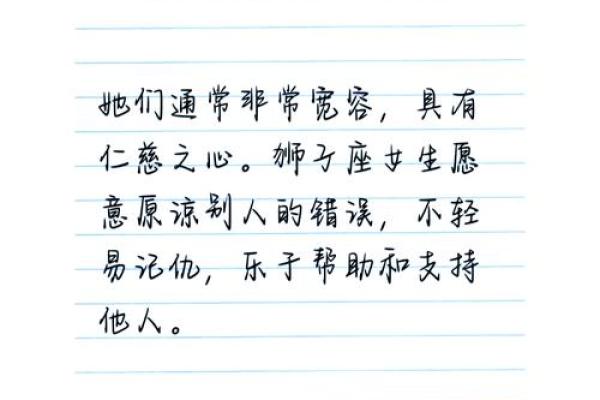 她们通常非常宽容，具有
仁慈之心。狮子座女生愿
意原谅别人的错误，不轻
易记仇，乐于帮助和支持
他人。